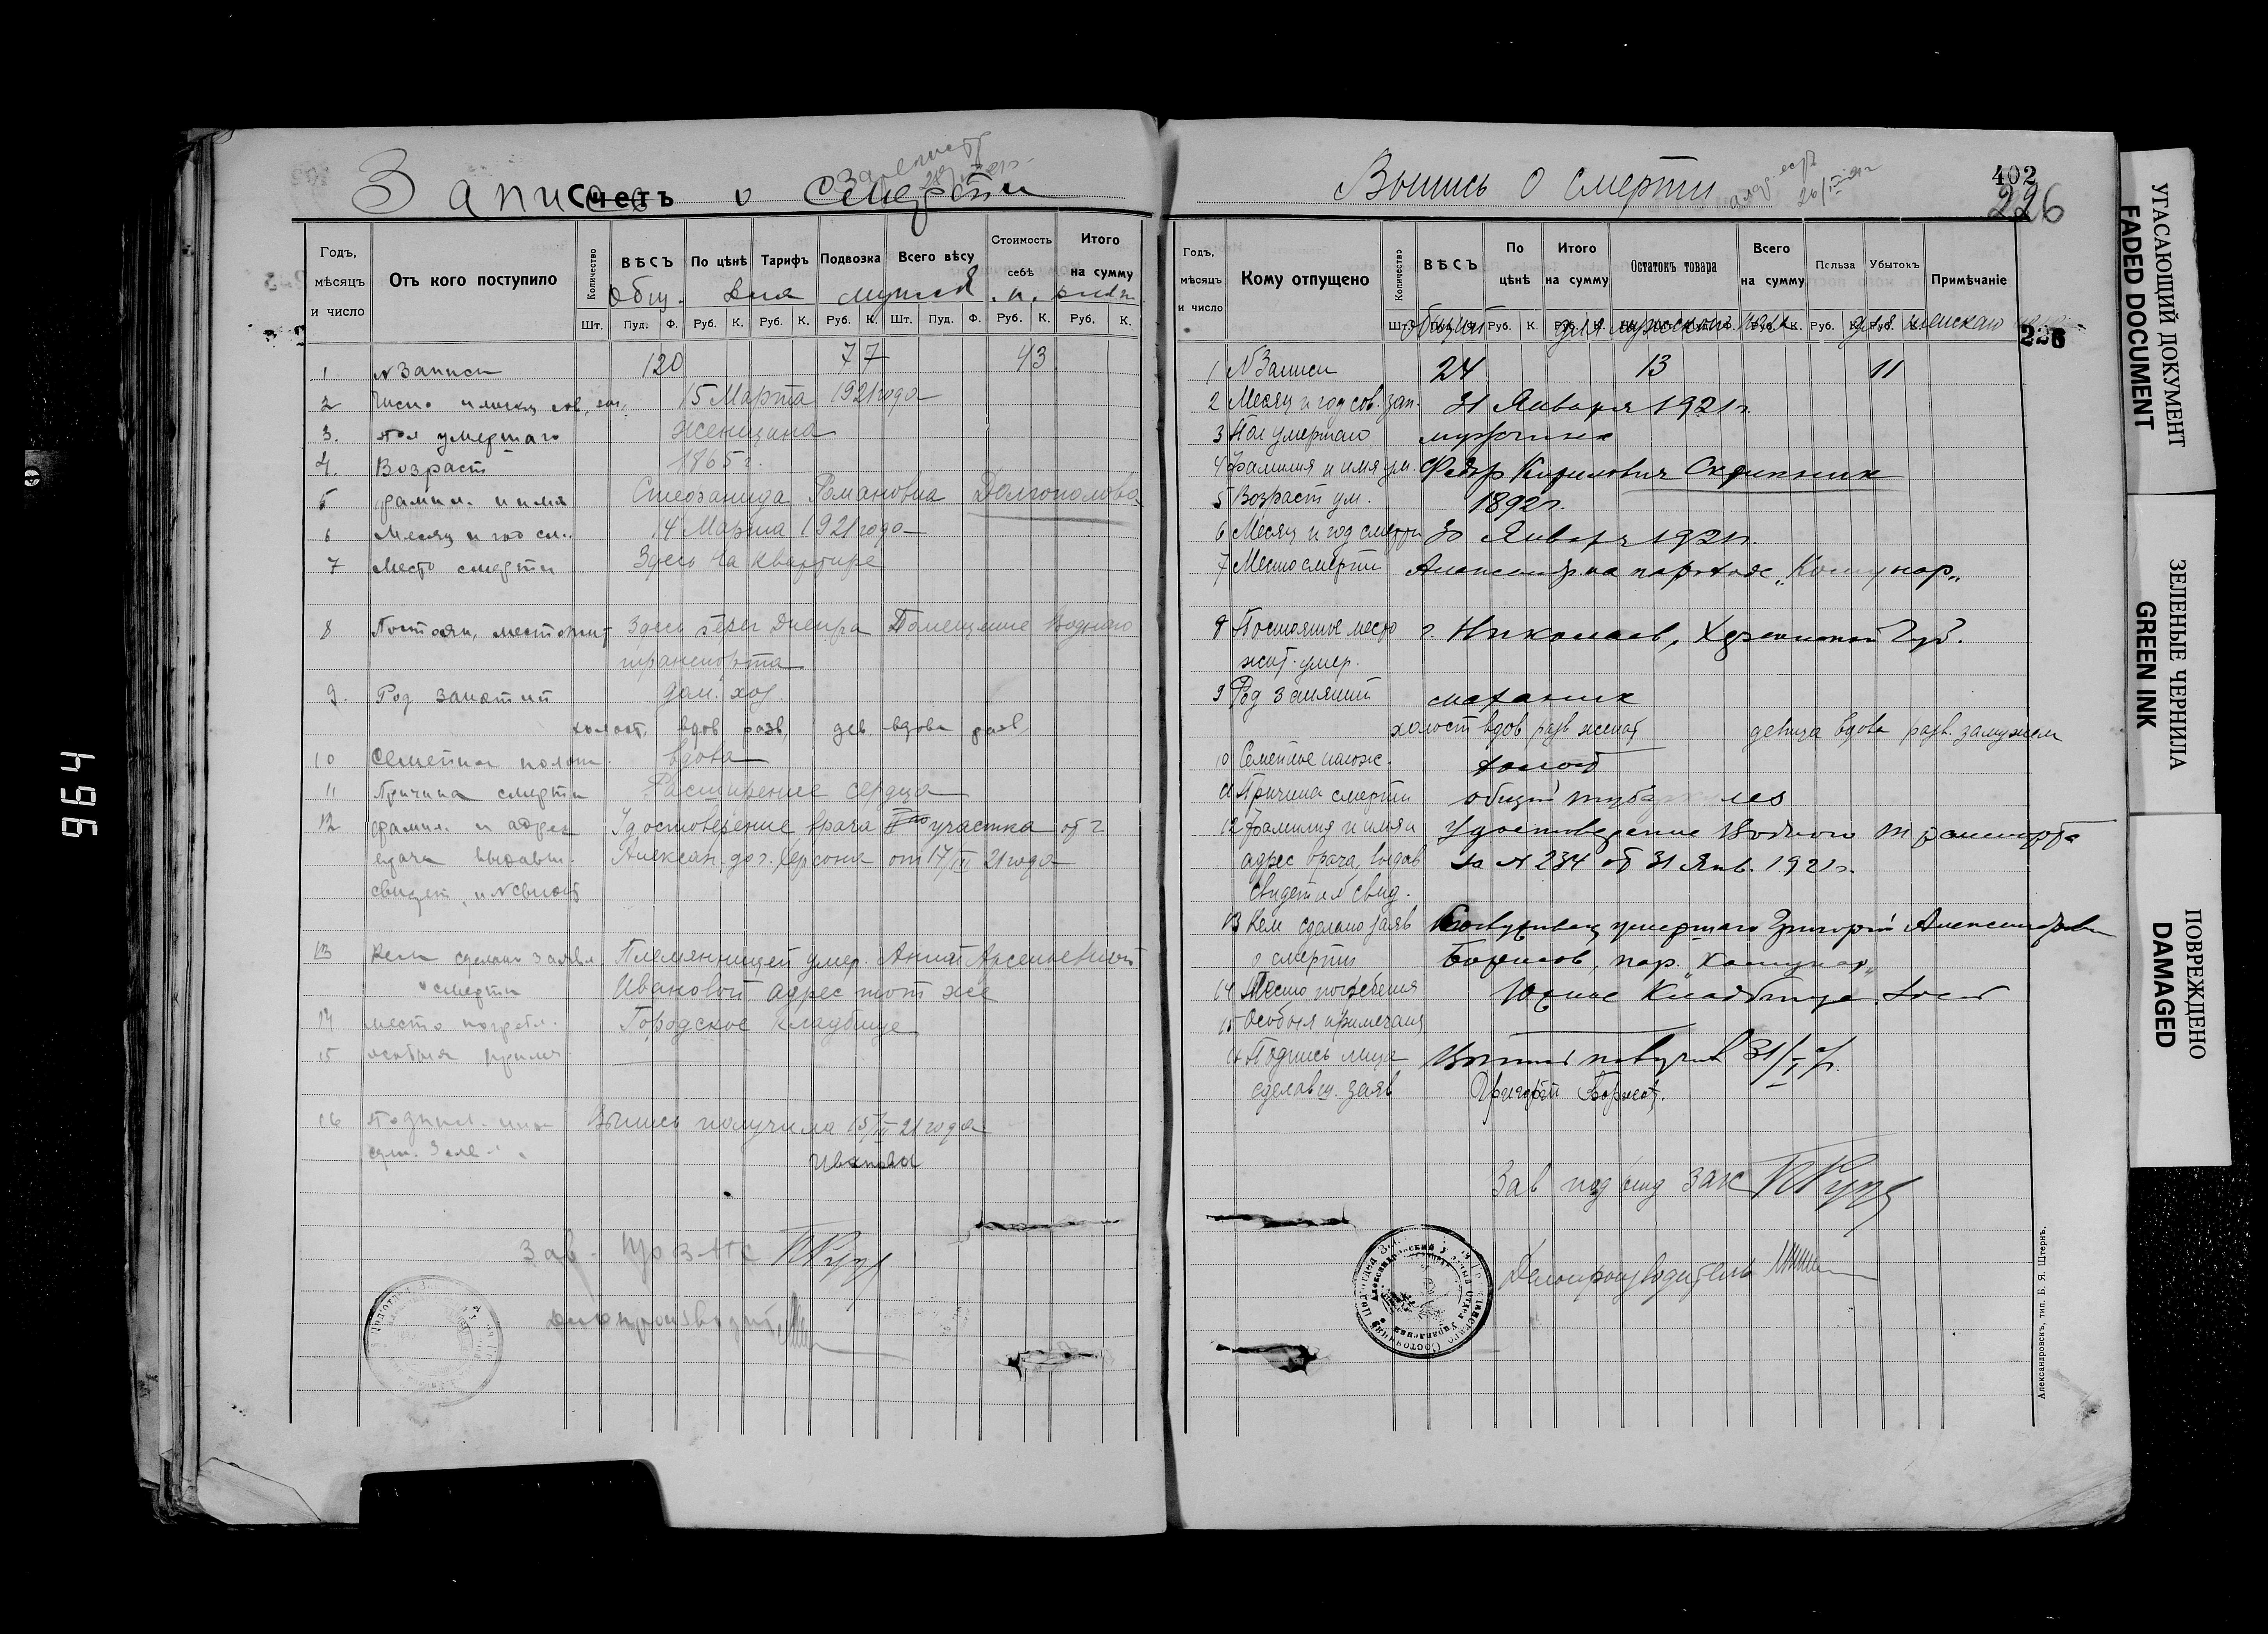 Запись о смерти
Счетъ
Годъ, мѣсяцъ и число
Отъ кого поступило
Количество
ВѢСЪ
По цѣнѣ
Тарифъ
Подвозка
Всего вѣсу
Стоимость себѣ
Итого на сумму
Общ. Для мужск
Шт. Пуд. Ф. Руб. К. Руб. К. Руб. К. Шт. Пуд. Ф. Руб. К. Руб. К.
1 № Записи 120 77 43
2 15 Марта 1921 года
3. пол умершаго женщина
4. Возраст 1865 г.
5 фамил. и имя Стефанида Романовна Долгополова
6 Месяц и год см. 14 Марта 1921 года
7 Место смерти Здесь на квартире
8 Постоян. место жит Здесь берег Днепра Помещение Водного
транспорта
9. Род занятий дом. хоз.
холост. вдов разв. дев. вдова разв.
10 Семейное полож. вдова
11 Причина смерти Расширение сердца
12 фамил. и адрес Удостоверение врача участка от г
врача выдавш. Алексан. до г. Херсона от 17/III 21 года
свидет. и №
13 Кем сделано заявл Племянницей умер. Анной Арсеньевной
о смерти Ивановой адрес тот же
14 место погребл. Городское кладбище
15 особыя прим.
16 Выпись получила 15/III 21 года
Иванова
Зав.
Делопроизводит
Выпись о смерти
402
226
Годъ, мѣсяцъ и число
Кому отпущено
Количество
ВѢСЪ
По цѣнѣ
Итого на сумму
Остатокъ товара
Всего на сумму
Польза
Убытокъ
Примѣчаніе
Общий для мужского пола для женскаго
226
1 № Записи 24 13 11
2 Месяц и год сов. зап. 31 Января 1921 г.
3 Пол умершаго мужчина
4 Фамилия и имя ум. Федор Кирилович Скрипник
5 Возраст ум. 1892 г.
6 Месяц и год смерти 30 Января 1921 г.
7 Место смерти Александр. на пароходе „Комунар„
8 Постоянное место г. Николаев, Херсонской Губ.
жит. умер.
9 Род занятий механик
холост вдов разв женат девица вдова разв. замужем
10 Семейное полож. холост
11 Причина смерти общий туберкулез
12 Фамилия и имя и Удостоверение Водного транспорта
адрес врача, выдав за № 234 от 31 Янв. 1921 г.
свидет и № свид.
13 Кем сделано заяв умершаго Григорий Александрович
о смерти Борисов, пар. „Комунар„
14 Место погребения Южное Кладбище
15 Особыя примечания
16 Подпись лица Выпись получил 31/I
сделавш. заяв Григорий
Зав под отд загс
Делопроизводитель
Александровскъ, тип. Б. Я. Штернъ.
УГАСАЮЩИЙ ДОКУМЕНТ
FADED DOCUMENT
ЗЕЛЕНЫЕ ЧЕРНИЛА
GREEN INK
ПОВРЕЖДЕНО
DAMAGED
964